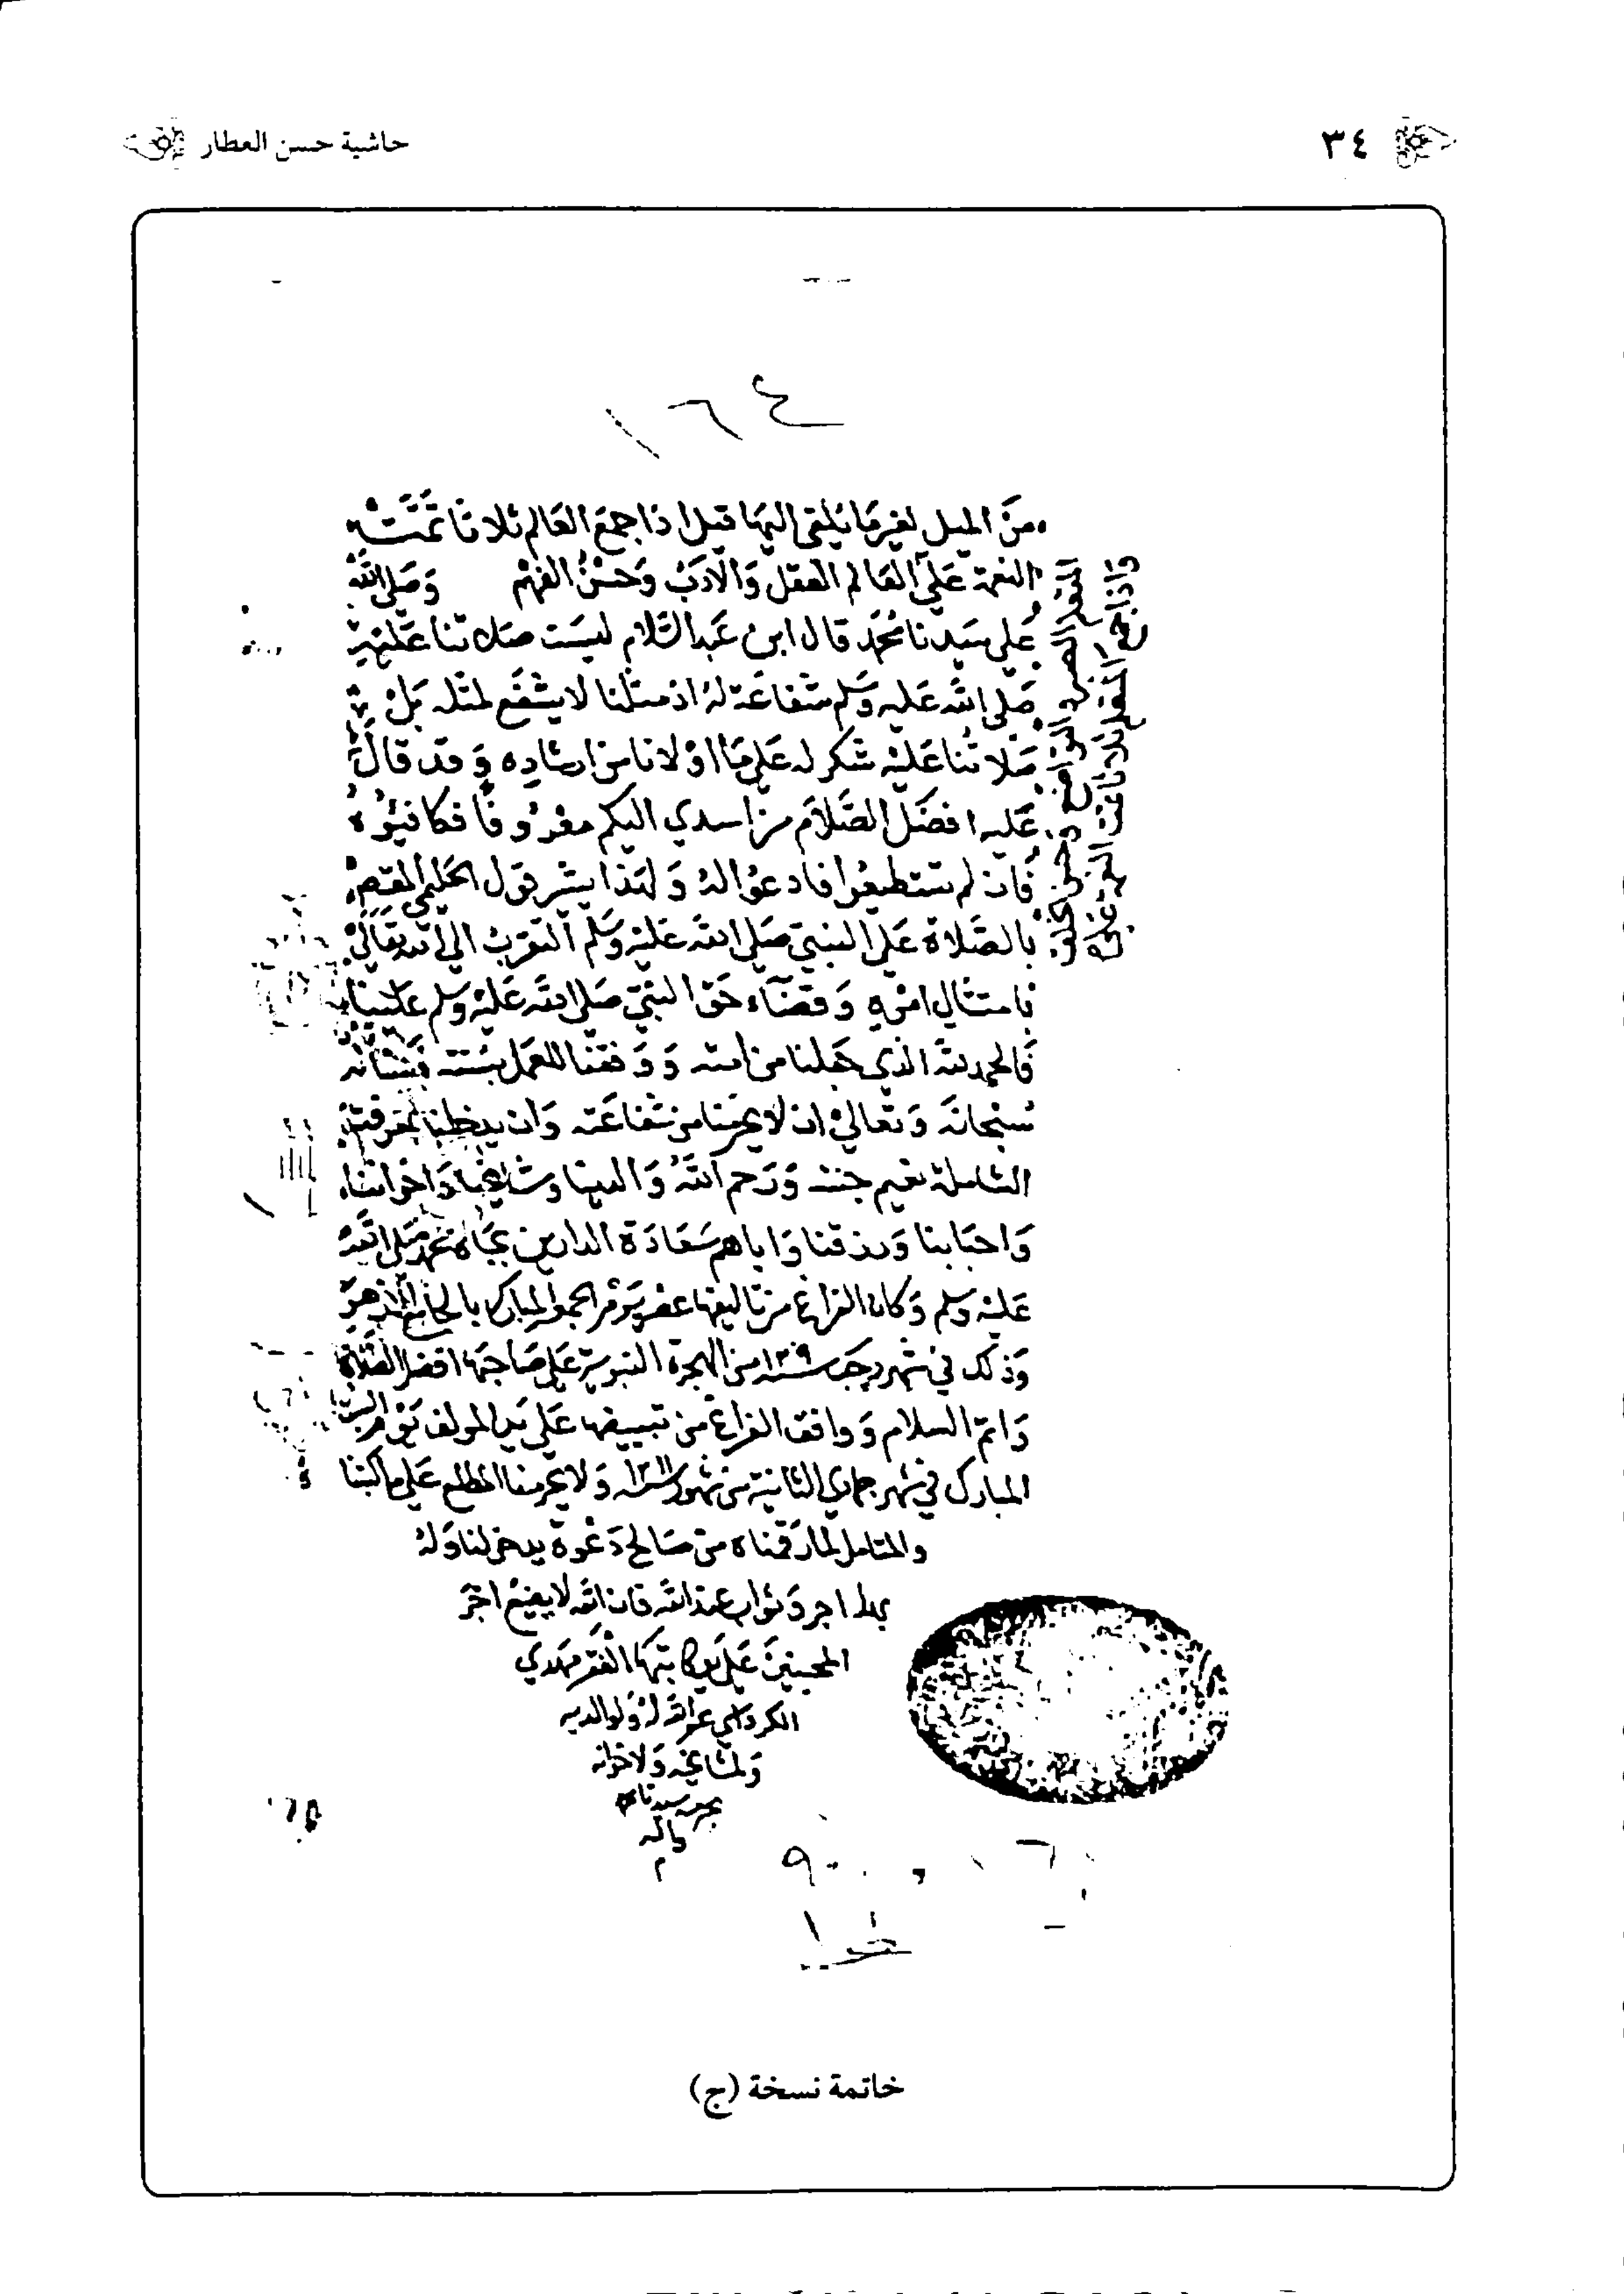 ٣٤
حاشية حسن العطار
١٦٤
من الميل لغير ما يلقى اليها قيل اذا جمع العالم ثلاثا تمت
النعمة على العالم العقل والادب وحسن الفهم وصلى الله
على سيدنا محمد قال ابن عبد السلام ليست صلاتنا عليه
صلى الله عليه وسلم شفاعة له اذ مثلنا لا يشفع لمثله بل
صلاتنا عليه شكر له على ما اولانا من ارشاده وقد قال
عليه افضل الصلام من اسدي اليكم معروفا فكافئوه
فان لم تستطيعوا فادعوا له ولهذا يشير قول الحليمي المقصود
بالصلاة على النبي صلى الله عليه وسلم التقرب الى الله تعالى
بامتثال امره وقضاء حق النبي صلى الله عليه وسلم علينا
فالحمد لله الذي جعلنا من امته ووفقنا للعمل بسنته فنسأله
سبحانه وتعالى ان لا يحرمنا من شفاعته وان يدخلنا
الشاملة نعيم جنته ورحم الله والدينا ومشايخنا واخواننا
واحبابنا ورزقنا واياهم سعادة الدارين بجاه محمد صلى الله
عليه وسلم وكان الفراغ من تاليفها عصر يوم الجمعة المبارك بالجامع الازهر
وذلك في شهر رجب سنة ١٢٠٩ من الهجرة النبوية على صاحبها افضل الصلاة
واتم السلام ووافق الفراغ من تبييضها على يد المولف يوم السبت
المبارك في شهر جمادي الثانية من شهور سنة ١٢١١ ولا يحرمنا المطلع على ما كتبنا
والمتامل لما رقمناه من صالح دعوة يدخر لنا وله
بها اجر وثواب عند الله فان الله لا يضيع اجر
المحسنين على يد كاتبها الفقير مهدي
غفر الله له ولوالديه
ولمشايخه ولاخوانه
سيدنا محمد
واله
م
واذا جمع المعلم ثلاثا تمت النعمة على
المتعلم الصبر والتواضع وحسن الخلق
خاتمة نسخة (ج)